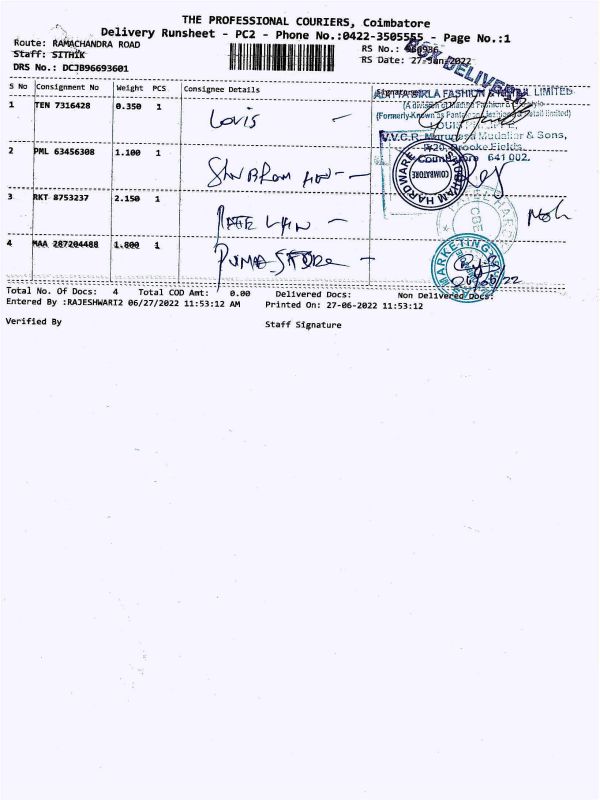 THE PROFESSIONAL COURIERS, Coimbatore
Delivery Runsheet - PC2 - Phone No.:0422-3505555 - Page No.:1
Route: RAMACHANDRA ROAD
RS No.:
Staff: SITHIK
RS Date: 27-Jun-2022
DRS No.: DCJB96693601
BOX DELIVERY
S No Consignment No Weight PCS Consignee Details Signature
1 TEN 7316428 0.350 1 Lovis
ADITYA BIRLA FASHION & RETAIL LIMITED
(A division of Madura Fashion & Lifestyle
(Formerly Known as Pantaloons Fashion & Retail limited)
LOUIS PHILIPPE,
V.V.C.R. Murugesa Mudaliar & Sons,
Brooke Fields,
Coimbatore 641 002.
2 PML 63456308 1.100 1
SHUBHAM HARDWARE
COIMBATORE
3 RKT 8753237 2.150 1
CBE
4 MAA 287204488 1.800 1 PUMA STORE
MARKETING
Total No. Of Docs: 4 Total COD Amt: 0.00 Delivered Docs: Non Delivered Docs:
Entered By :RAJESHWARI2 06/27/2022 11:53:12 AM Printed On: 27-06-2022 11:53:12
Verified By
Staff Signature